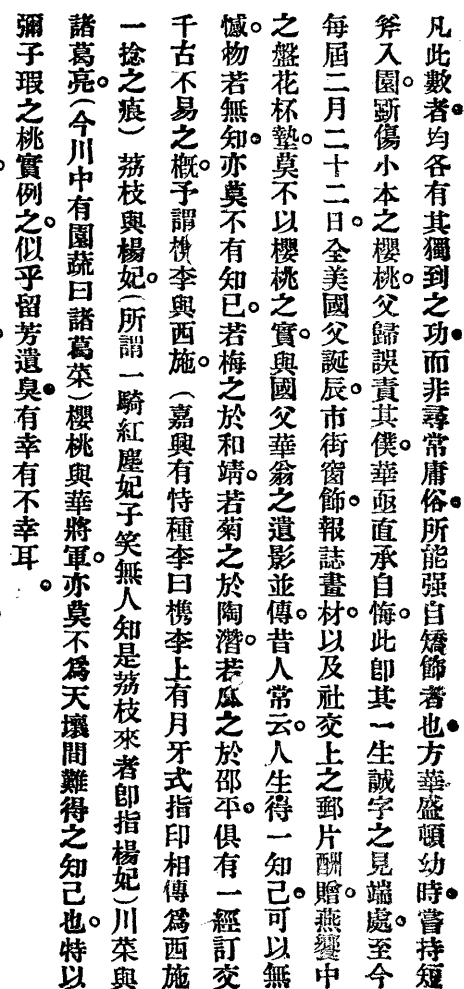 凡此數者均各有其獨到之功而非尋常庸俗所能强自矯飾者也方華盛頓幼時嘗持短
斧入園斵傷小本之櫻桃父歸誤責其僕華亟直承自悔此卽其一生誠字之見端處至今
每屆二月二十二日全美國父誕辰市街窗飾報誌畫材以及社交上之郵片酬贈燕饗中
之盤花杯墊莫不以櫻桃之實與國父華翁之遺影並傳昔人常云人生得一知己可以無
憾物若無知亦莫不有知已若梅之於和靖若菊之於陶潛若瓜之於邵平俱有一經訂交
千古不易之概予謂檇李與西施(嘉興有恃種李曰檇李上有月牙式指印相傳爲西施
一捻之痕)荔枝與楊妃(所謂一騎紅塵妃子笑無人知是荔枝來者卽指楊妃)川菜與
諸葛亮(今川中有園蔬曰諸葛菜)櫻桃與華將軍亦莫不爲天壤間難得之知己也特以
彌子瑕之桃實例之似乎留芳遺臭有幸有不幸耳。